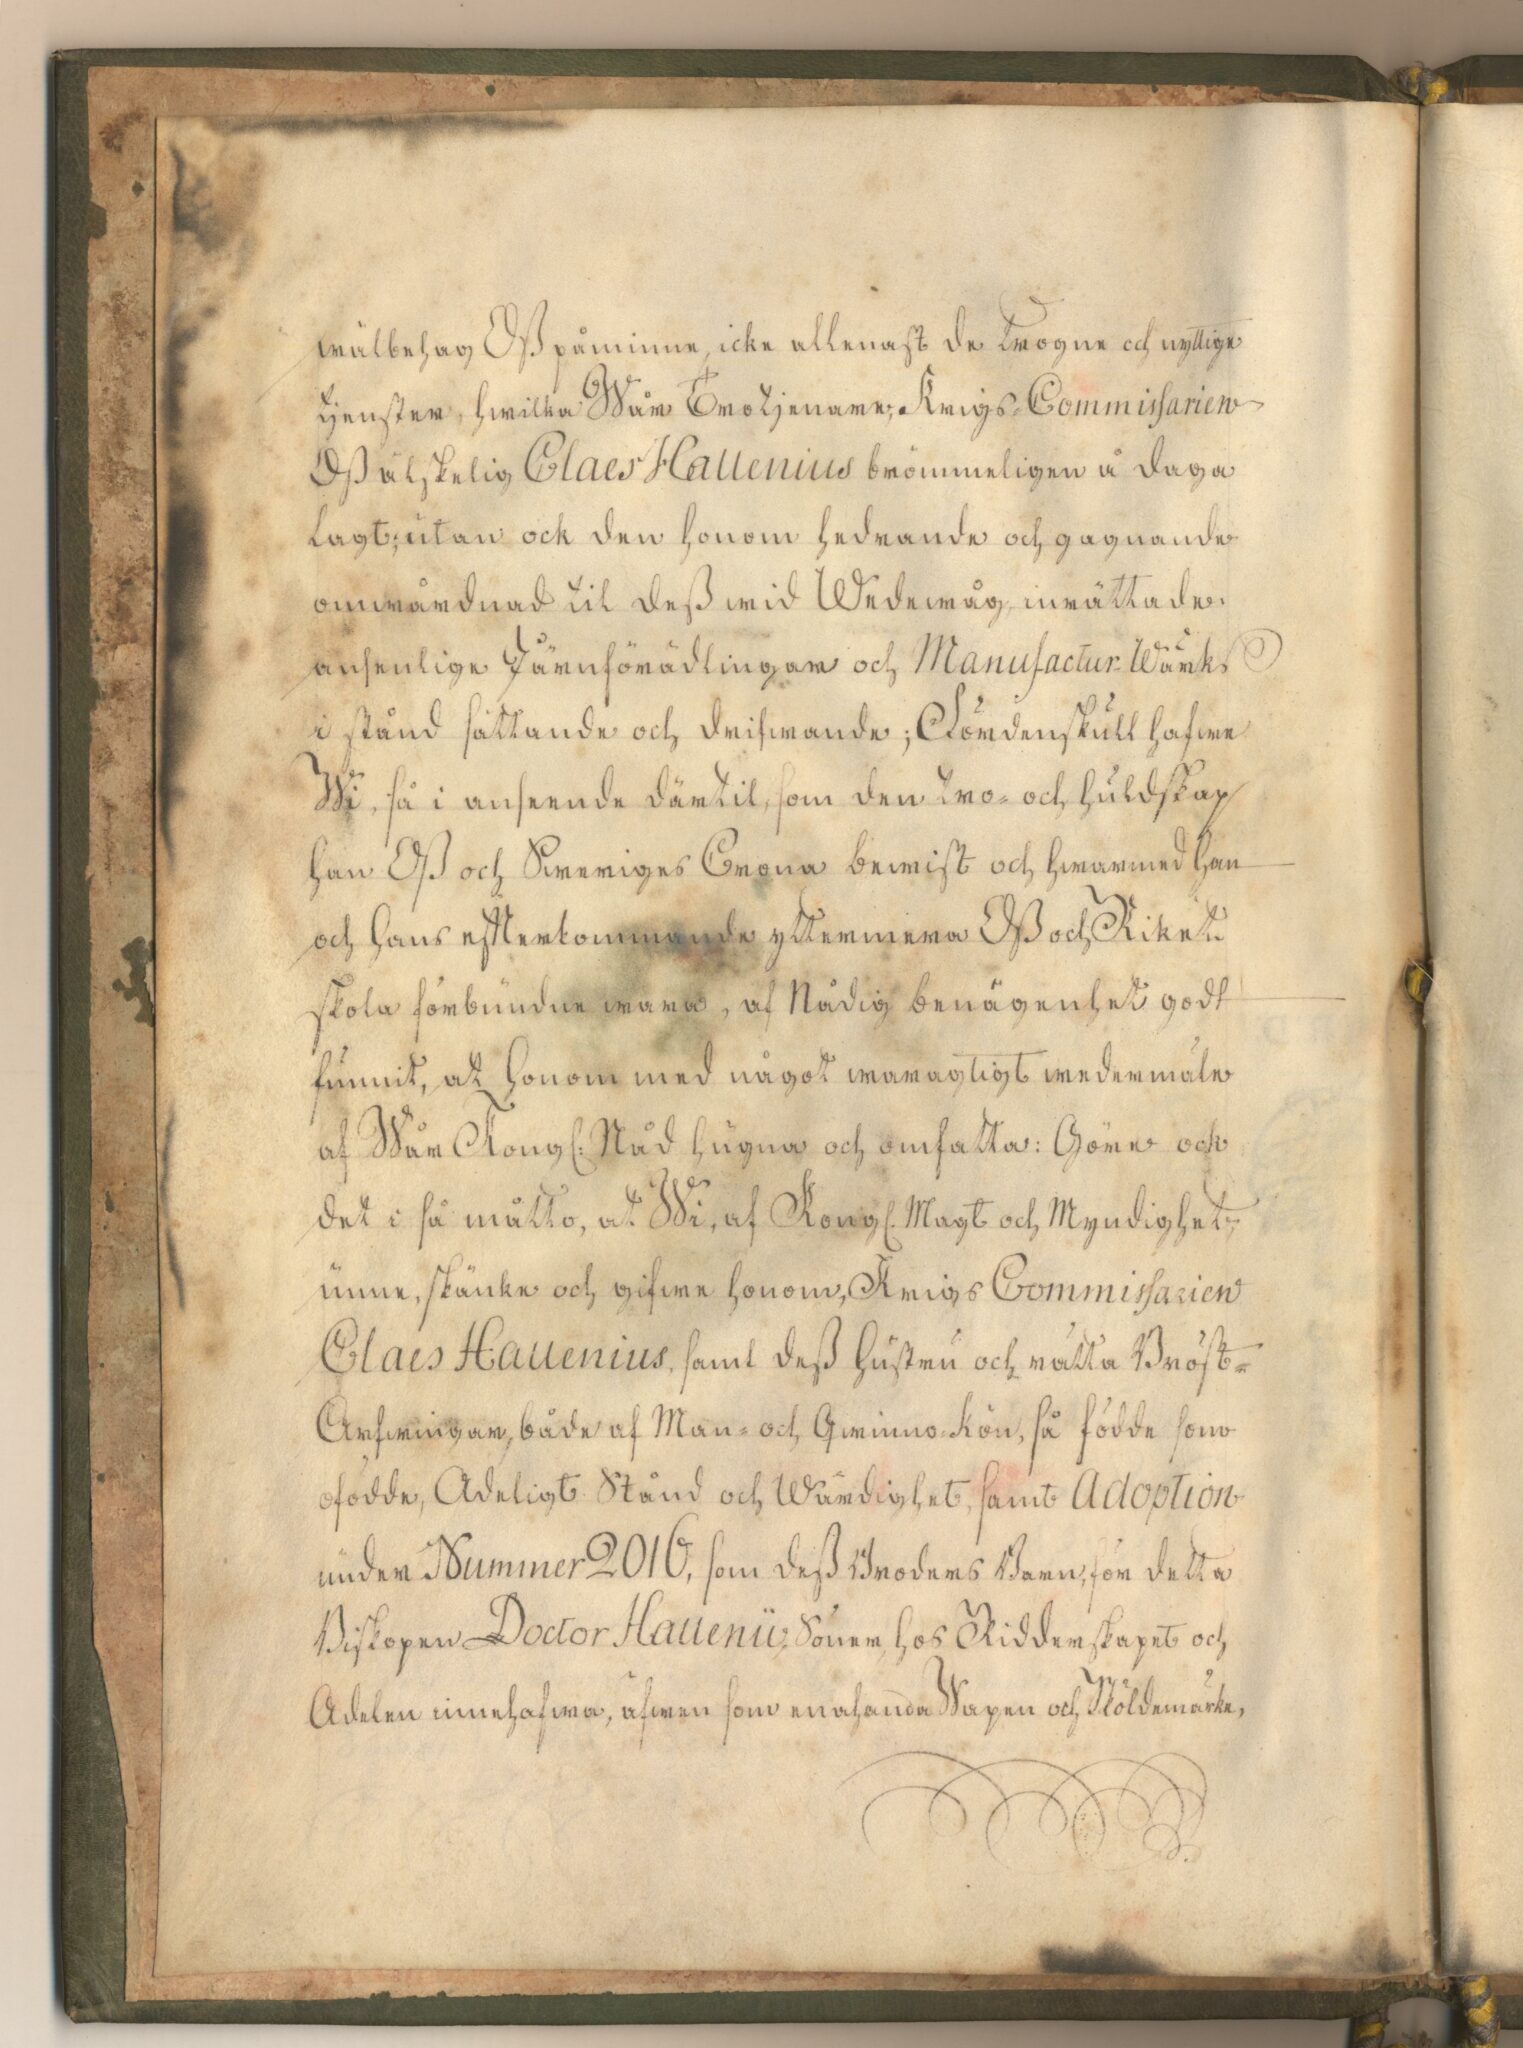 wälbehag Oß påminne, icke allenast de trogne och nyttige
tjenster, hwilka Wår Trotjenare, Krigs-Commissarien
Oß älskelig Claes Hallenius berömmeligen å daga
lagt; utan ock den honom hedrande och gagnande
omwårdnad til deß wid Wedewåg inrättade
ansenlige Järnförädlingar och Manufactur-Wärks
i stånd sättande och drifwande; Fördenskull hafwe
Wi, så i anseende därtil, som den tro- och huldskap
han Oß och Sweriges Crona bewist och hwarmed han
och hans efterkommande yttermera Oß och Riket
skola förbundne wara, af Nådig benägenhet godt
funnit, at honom med något waragtigt wedermäle
af Wår Kongl: Nåd hugna och omfatta: Göre ock
det i så måtto, at Wi, af Kongl. Magt och Myndighet,
unne, skänke och gifwe honom, Krigs Commissarien
Claes Hallenius, samt deß hustru och rätta Bröst-
Arfwingar, både af Man- och Qwinno-Kön, så födde som
ofödde, Adeligt Stånd och Wärdighet, samt Adoption
under Nummer 2016, som deß Broders Barn, för detta
Biskopen Doctor Hallenii Söner, hos Ridderskapet och
Adelen innehafwa, äfwen som enahanda Wapen och Sköldemärke,